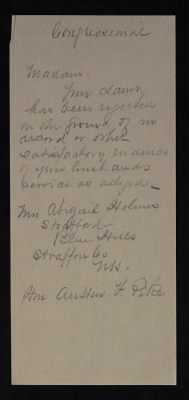 Congressional
Madam.
Your claim
has been rejected
on the ground of no
record or other
satisfactory evidence
of your husbands
service as alleged_
Mrs Abigail Holmes
Strafford
Blue Hills
Strafford Co
NH.
Hon Austin F. Pike